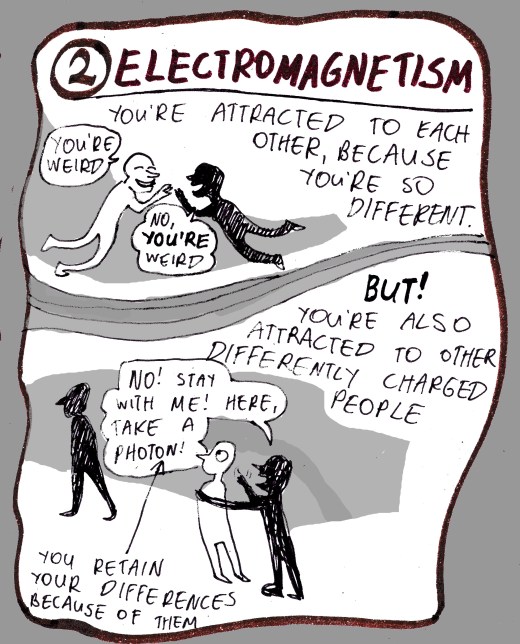 2 ELECTROMAGNETISM
YOU'RE ATTRACTED TO EACH
OTHER, BECAUSE
YOU'RE SO
DIFFERENT.
YOU'RE
WEIRD
NO,
YOU'RE
WEIRD
BUT!
YOU'RE ALSO
ATTRACTED TO OTHER
DIFFERENTLY CHARGED
PEOPLE
NO! STAY
WITH ME! HERE,
TAKE A
PHOTON!
YOU RETAIN
YOUR DIFFERENCES
BECAUSE OF THEM